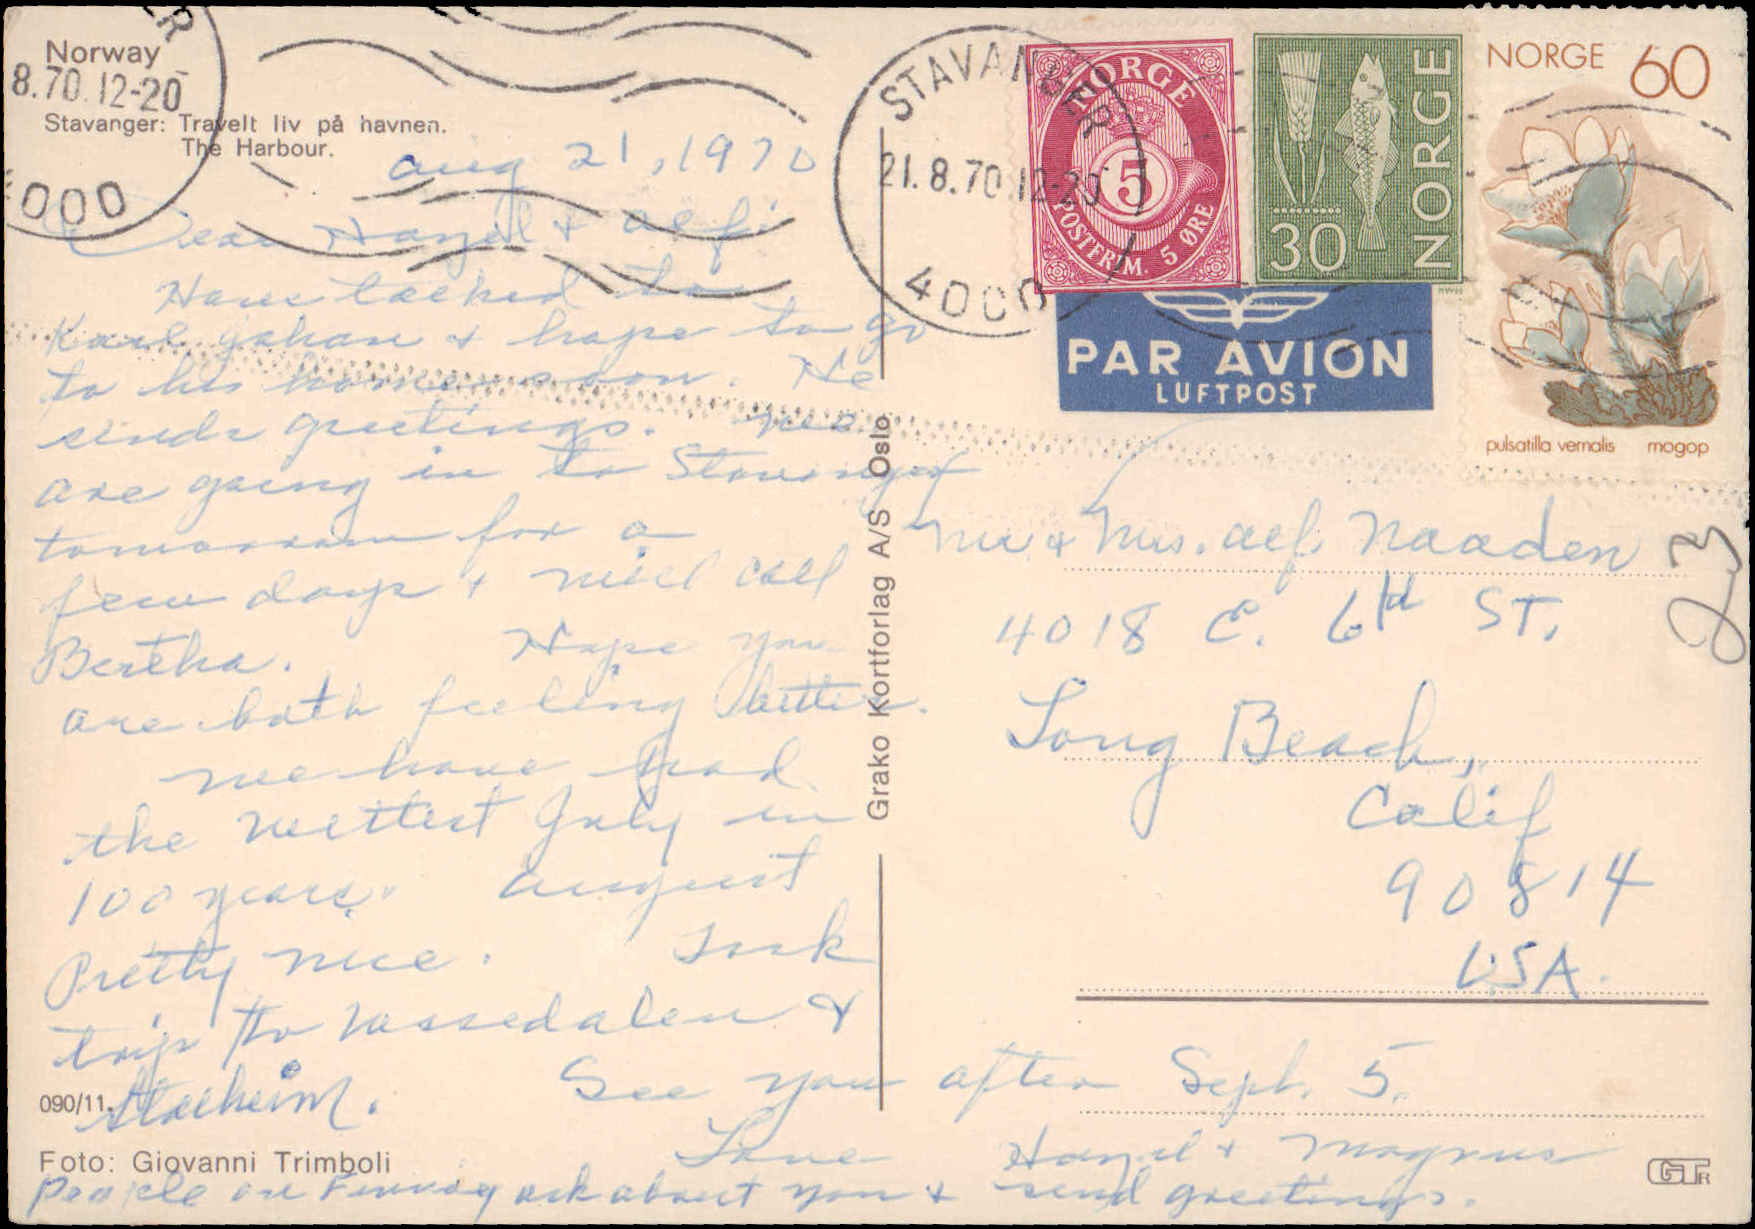 Norway
8.70.12-20
Stavanger: Travelt liv på havnen.
The Harbour.
000
Aug 21, 1970
Dear Hazel & Alf:
Have talked to
Karl Johan & hope to go
to his home soon. He
sends greetings. We
are going in to Stavanger
tomorrow for a
few days & will call
Bertha. Hope you
are both feeling better.
We have had
the wettest July in
100 years. August
Pretty nice. Took
trip to Vassedalen &
Stalheim. See you after Sept. 5.
Love Hazel & Magnus
People on Finnøy ask about you & send greetings.
090/11.
Foto: Giovanni Trimboli
Grako Kortforlag A/S Oslo
STAVANGER
21.8.70.12-20
4000
NORGE
5
POSTFRIM. 5 ØRE
30
NORGE
NORGE 60
pulsatilla vernalis mogop
PAR AVION
LUFTPOST
Mr & Mrs. Alf Naaden
4018 E. 6th ST.
Long Beach,
Calif
90814
USA.
23